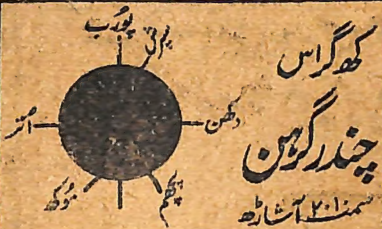 کھگراس
چندر گرہن
سمت ۲۰۱۰ آشاڑھ
پورب
دکھن
پچھم
موکھ
اتر